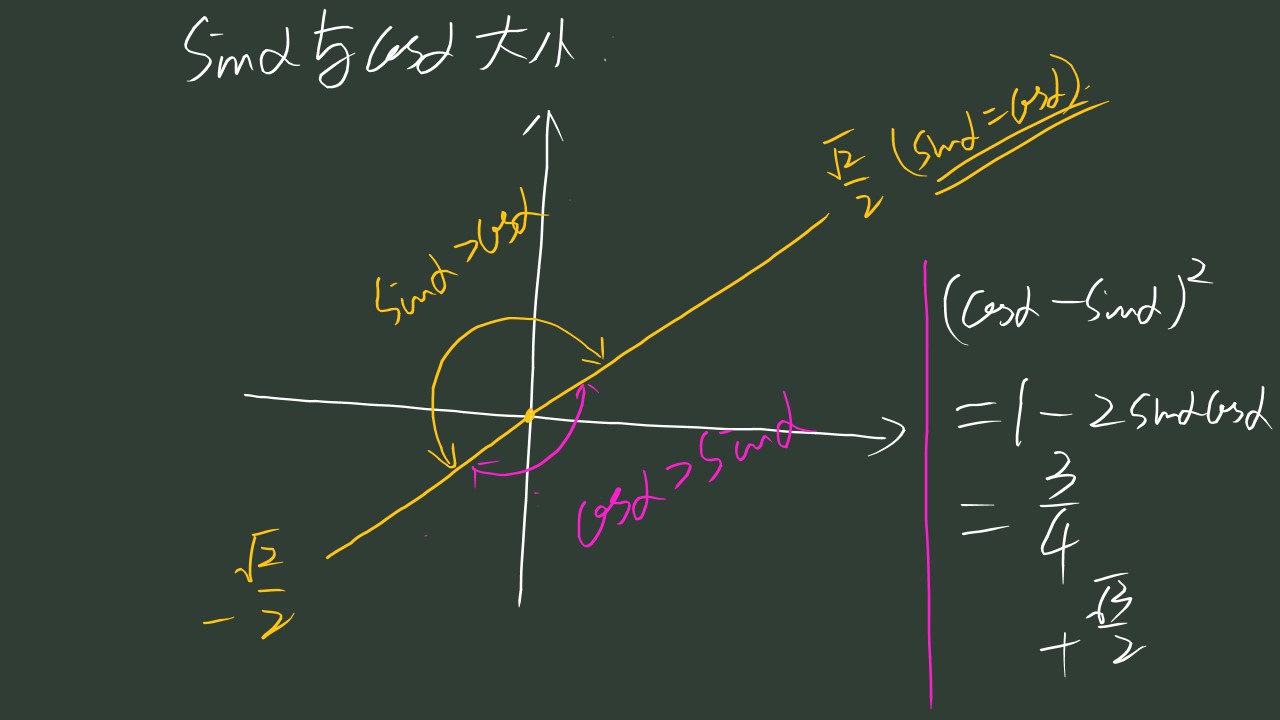 sinα与cosα大小
√2/2 (sinα=cosα)
sinα>cosα
cosα>sinα
-√2/2
(cosα-sinα)²
=1-2sinαcosα
=3/4
+√3/2